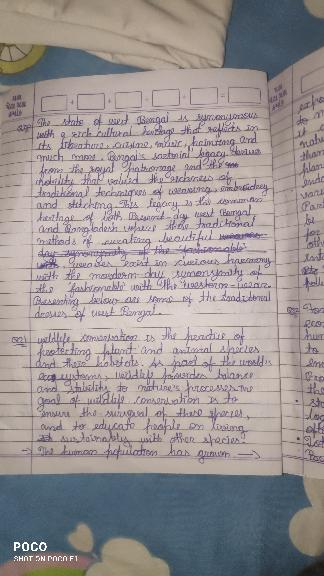 The state of west Bengal is synonymous
with a rich cultural heritage that reflects in
its literature, cuisine, music, painting and
much more. Bengal's sartorial legacy derives
from the royal patronage and the
nobility that valued the richness of
traditional techniques of weaving, embroidery
and stitching. This legacy is the common
heritage of both Present-day west Bengal
and Bangladesh where these traditional
methods of creating beautiful weaves
day synonymity of the fashionable
with weaves exist in curious harmony
with the mordern-day synonymity of
the fashionable with the western-wear.
Presenting below are some of the traditional
dresses of west Bengal.
wildlife conservation is the practice of
protecting plant and animal species
and their habitats. As part of the world's
ecosystems, wildlife provides balance
and stability to nature's processes. The
goal of wildlife conservation is to
ensure the survival of these species,
and to educate people on living
sustainably with other species.
→ The human population has grown →
POCO
SHOT ON POCO F1